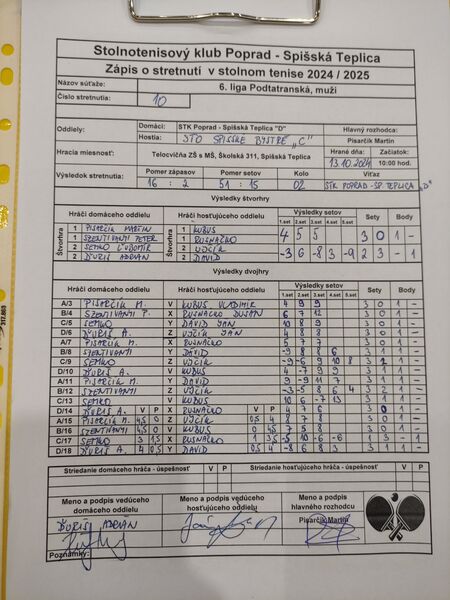 Stolnotenisový klub Poprad - Spišská Teplica
Zápis o stretnutí v stolnom tenise 2024 / 2025
Názov súťaže: 6. liga Podtatranská, muži
Číslo stretnutia: 10
Oddiely: Domáci: STK Poprad - Spišská Teplica "D" Hlavný rozhodca:
Hostia: STO SPIŠSKÉ BYSTRÉ „C" Pisarčik Martin
Hracia miesnosť: Telocvičňa ZŠ s MŠ, Školská 311, Spišská Teplica Hrané dňa: 13.10.2024 Začiatok: 10:00 hod.
Výsledok stretnutia: Pomer zápasov Pomer setov Kolo Víťaz
16 : 2 51 : 15 02 STK POPRAD-SP. TEPLICA „D"
Výsledky štvorhry
Hráči domáceho oddielu Hráči hosťujúceho oddielu Výsledky setov Sety Body
1.set 2.set 3.set 4.set 5.set
Štvorhra 1 PISARČIK MARTIN Štvorhra 1 KUBUS 4 5 5 3 0 1 -
1 SZENTIVANYI PETER 1 RUSNAČKO
2 SEMKO ĽUBOMÍR 2 UJČÍK -3 6 -8 3 -9 2 3 - 1
2 ĎURIŠ ADRIÁN 2 DAVID
Výsledky dvojhry
Hráči domáceho oddielu Hráči hosťujúceho oddielu Výsledky setov Sety Body
1.set 2.set 3.set 4.set 5.set
A/3 PISARČIK M. V KUBUS VLADIMIR 4 9 9 3 0 1 -
B/4 SZENTIVANYI P. X RUSNAČKO DUŠAN 6 7 12 3 0 1 -
C/5 SEMKO Y DAVID JAN 10 8 9 3 0 1 -
D/6 ĎURIŠ A. Z UJČÍK JAN 4 8 8 3 0 1 -
A/7 PISARČIK M. X RUSNAČKO 5 7 7 3 0 1 -
B/8 SZENTIVANYI Y DAVID -9 8 8 6 3 1 1 -
C/9 SEMKO Z UJČÍK -9 -6 9 10 8 3 2 1 -
D/10 ĎURIŠ A. V KUBUS 4 -7 9 9 3 1 1 -
A/11 PISARČIK M Y DAVID 9 -9 11 7 3 1 1 -
B/12 SZENTIVANYI Z UJČÍK -3 -5 8 6 4 3 2 1 -
C/13 SEMKO V KUBUS 10 6 -7 13 3 1 1 -
D/14 ĎURIŠ A. V P X RUSNAČKO V P 4 7 6 3 0 1 -
A/15 PISARČIK M. 4,5 0 Z UJČÍK 0,5 4 4 8 8 3 0 1 -
B/16 SZENTIVANYI 4,5 0 V KUBUS 0 4,5 7 5 8 3 0 1 -
C/17 SEMKO 3 1,5 X RUSNAČKO 1 3,5 -5 10 -6 -6 1 3 - 1
D/18 ĎURIŠ A. 4 0,5 Y DAVID 0,5 4 -8 6 8 3 3 1 1 -
Striedanie domáceho hráča - úspešnosť V P Striedanie hosťujúceho hráča - úspešnosť V P
Meno a podpis vedúceho domáceho oddielu
Meno a podpis vedúceho hosťujúceho oddielu
Meno a podpis hlavného rozhodcu
ĎURIŠ ADRIÁN
Pisarčik Martin
Poznámky: